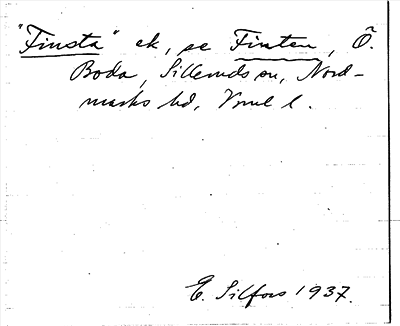 "Finsta" ek, se Finsten, Ö.
Boda, Silleruds sn, Nord-
marks hd, Vrml l.
E. Silfors 1937.